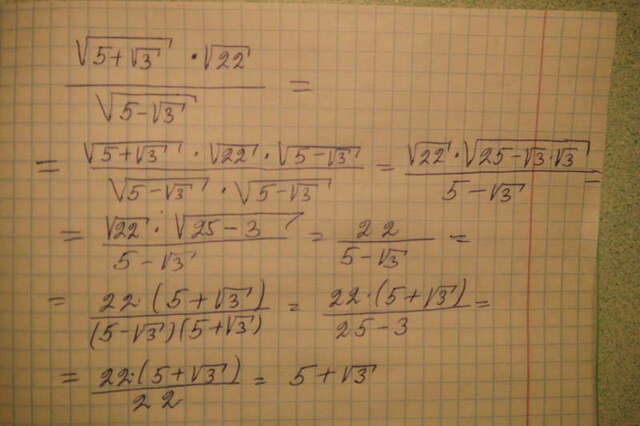 √(5+√3) · √22 / √(5-√3) =
= √(5+√3) · √22 · √(5-√3) / √(5-√3) · √(5-√3) = √22 · √(25-√3·√3) / 5-√3 =
= √22 · √(25-3) / 5-√3 = 22 / 5-√3 =
= 22·(5+√3) / (5-√3)(5+√3) = 22·(5+√3) / 25-3 =
= 22·(5+√3) / 22 = 5+√3